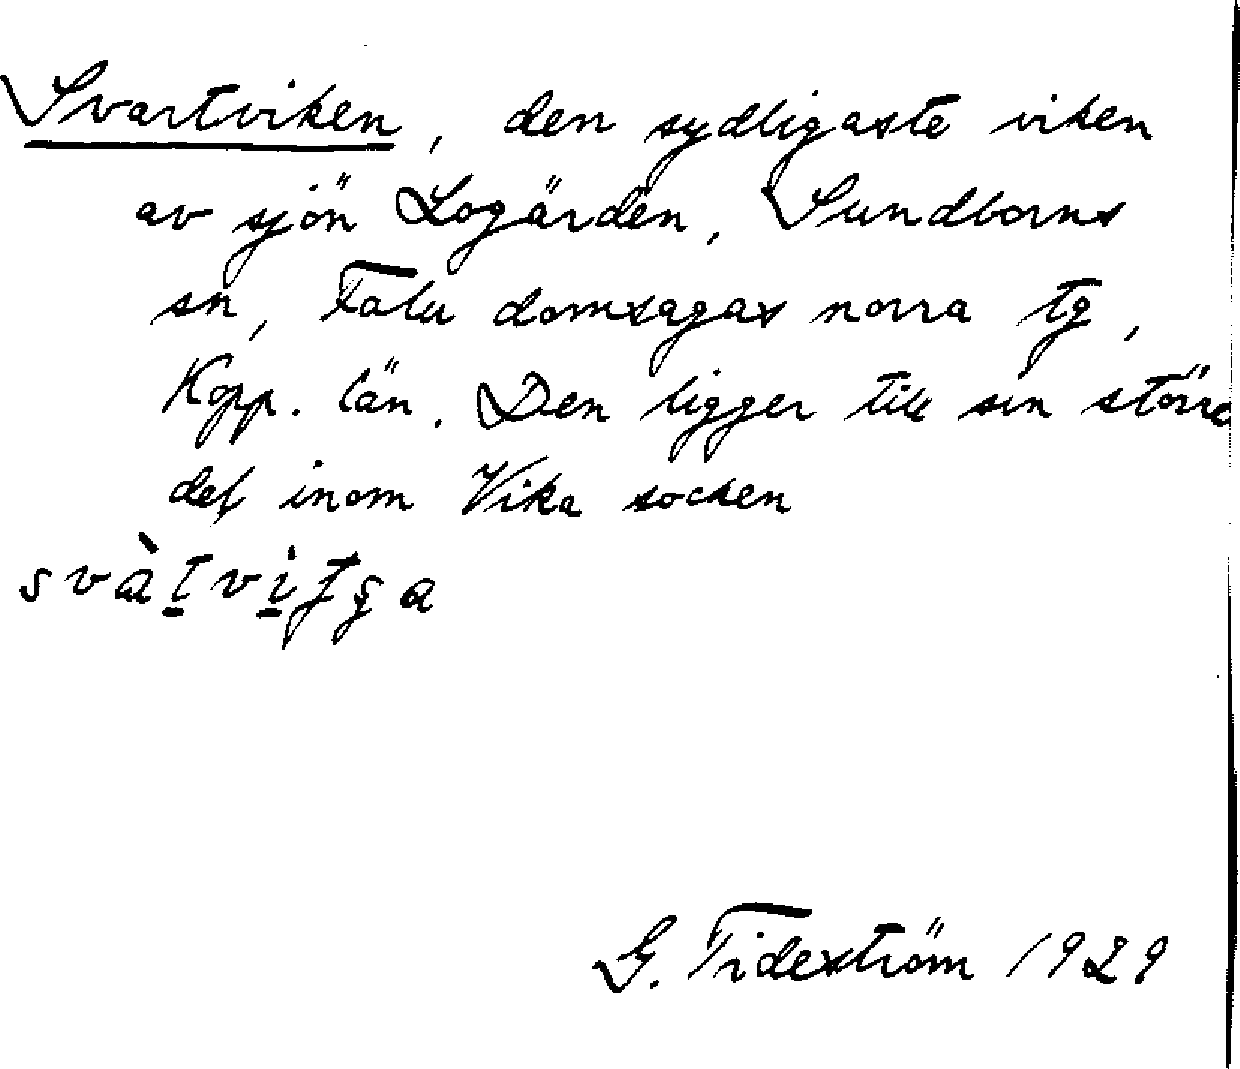 Svartviken, den sydligaste viken
av sjön Logärden, Sundborns
sn, Falu domsagas norra tg,
Kopp. län. Den ligger till sin större
del inom Vika socken
G. Tideström 1929